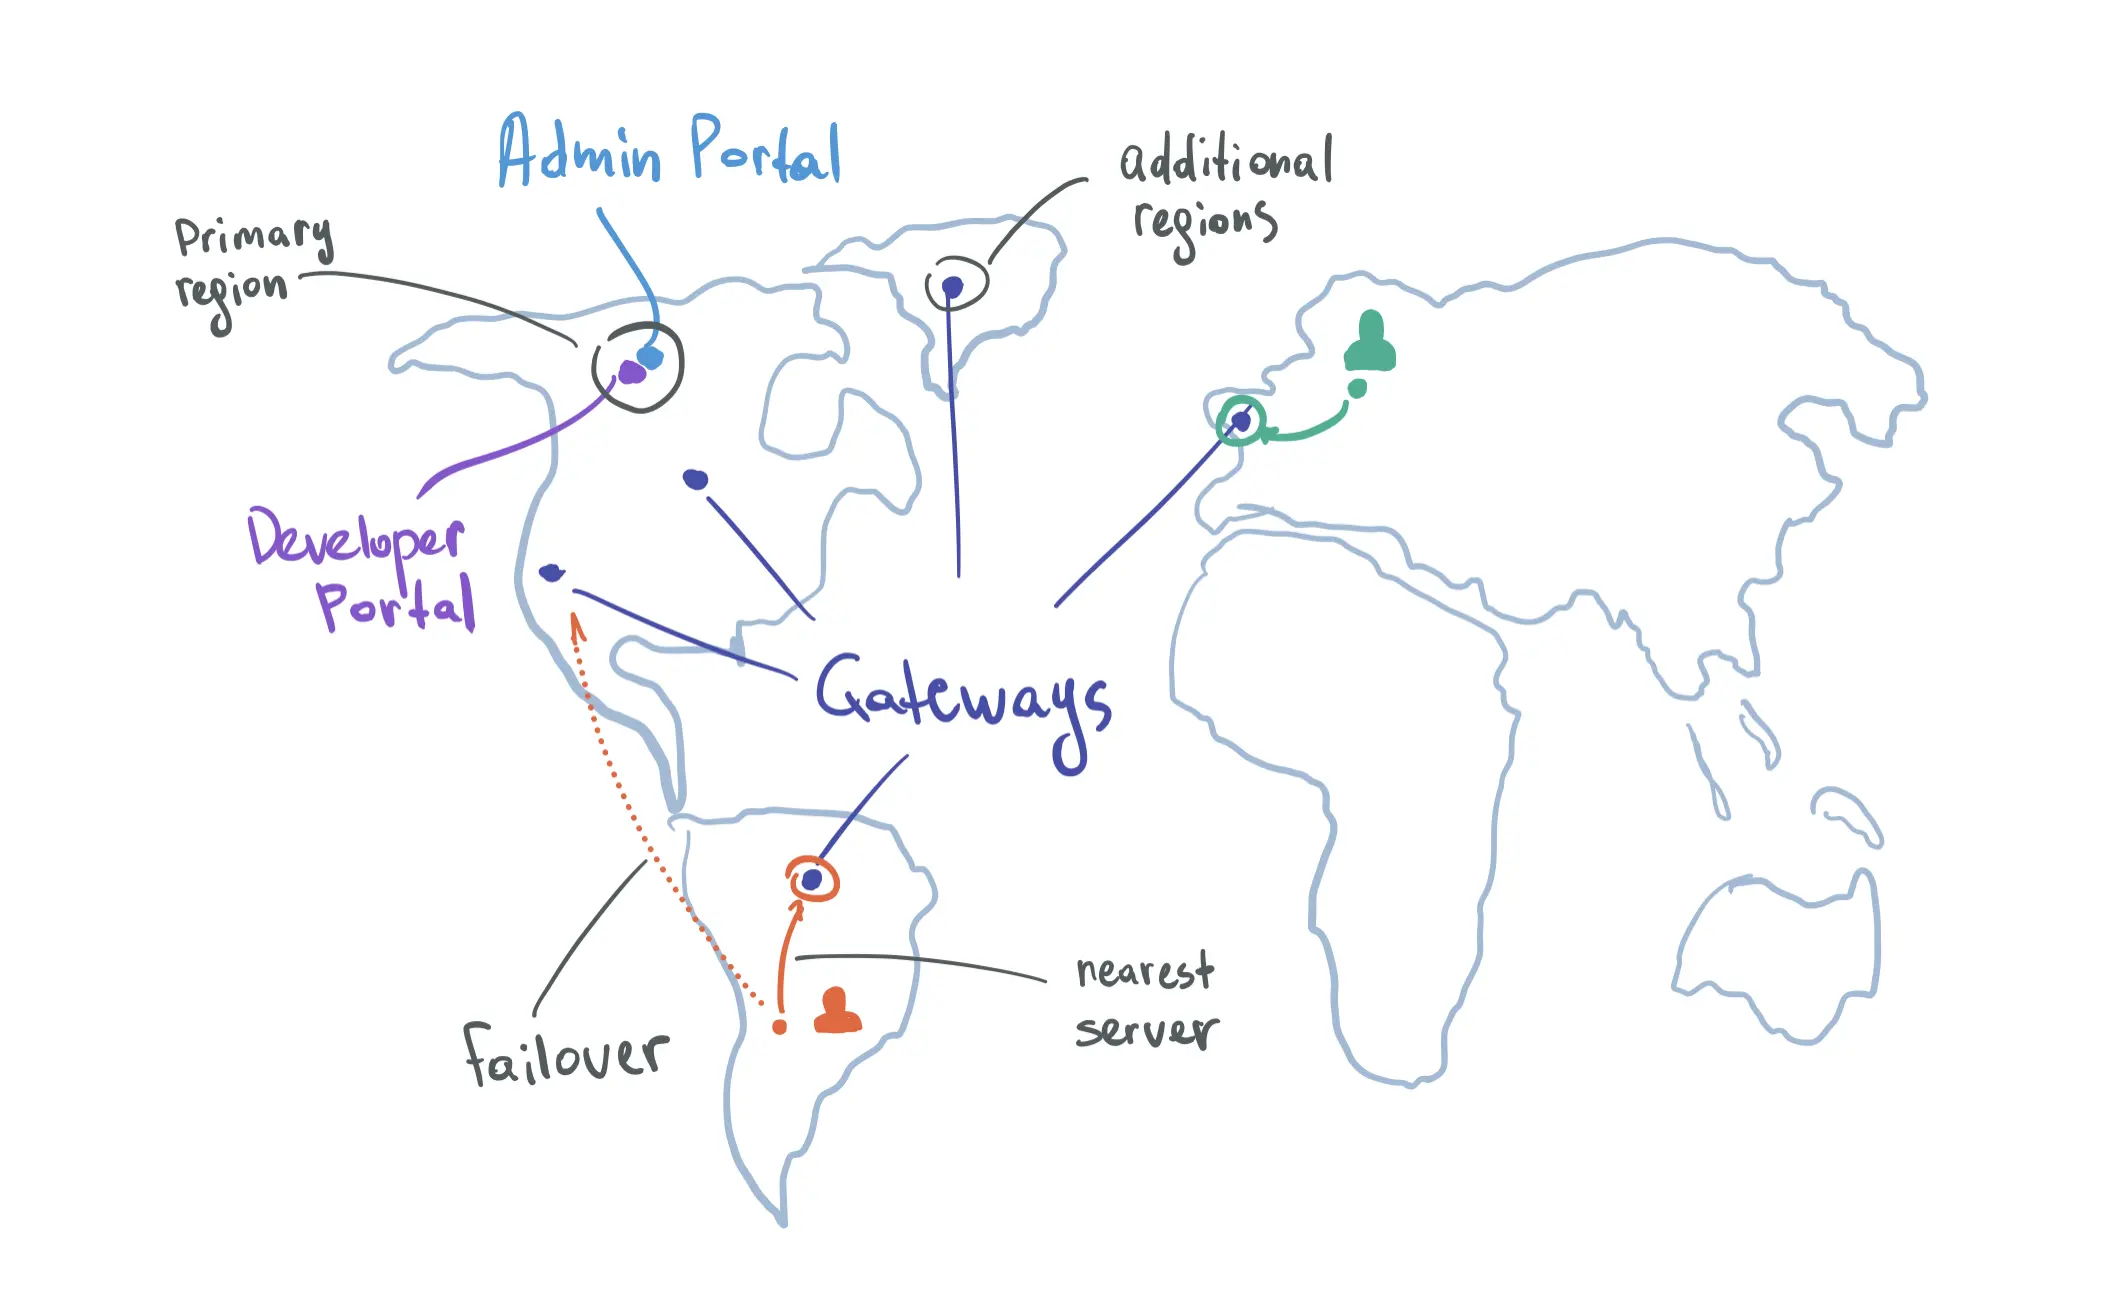 Admin Portal
additional
regions
Primary
region
Developer
Portal
Gateways
nearest
server
failover